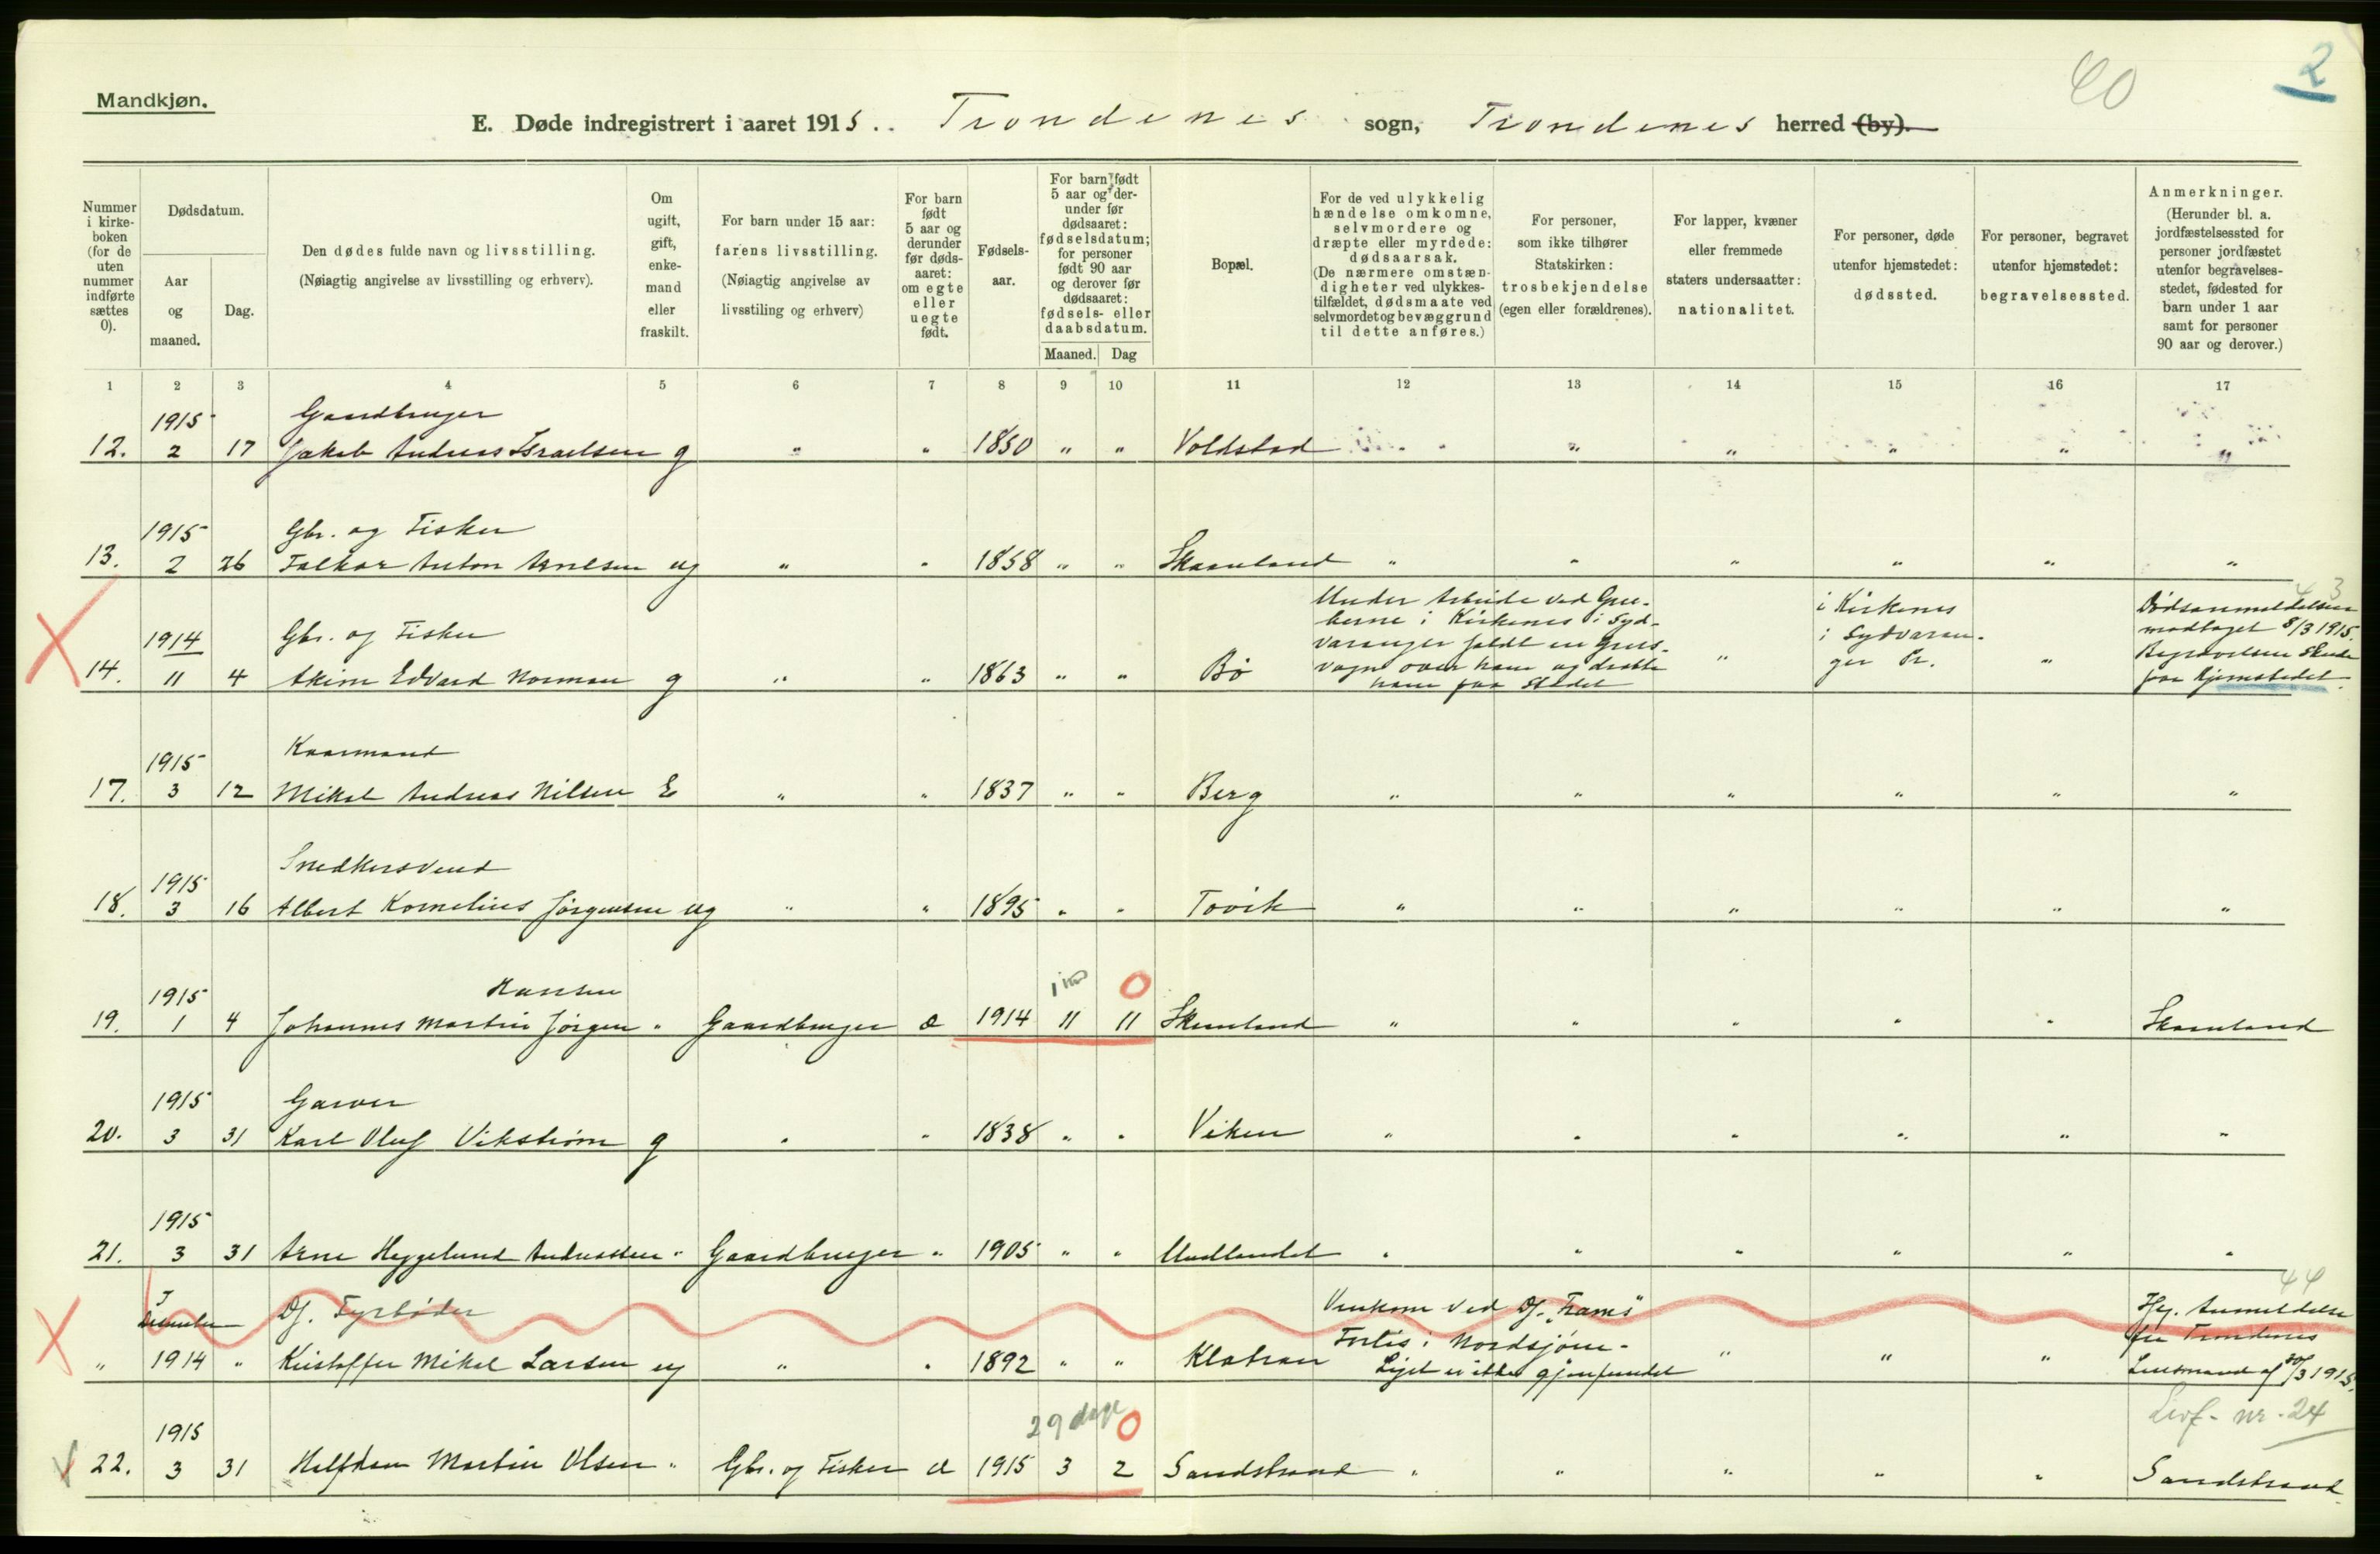 40
2
Mandkjøn.
E. Døde indregistrert i aaret 1915. Trondenes sogn, Trondenes herred (by).
Nummer i kirkeboken (for de uten nummer indførte sættes 0).
Dødsdatum.
Aar og maaned.
Dag.
Den dødes fulde navn og livsstilling.
(Nøiagtig angivelse av livsstilling og erhverv).
Om ugift, gift, enkemand eller fraskilt.
For barn under 15 aar: farens livsstilling.
(Nøiagtig angivelse av livsstiling og erhverv)
For barn født 5 aar og derunder før dødsaaret: om egte eller uegte født.
Fødselsaar.
For barn født 5 aar og derunder før dødsaaret: fødselsdatum; for personer født 90 aar og derover før dødsaaret: fødsels- eller daabsdatum.
Maaned. Dag
Bopæl.
For de ved ulykkelig hændelse omkomne, selvmordere og dræpte eller myrdede: dødsaarsak.
(De nærmere omstændigheter ved ulykkestilfældet, dødsmaate ved selvmordet og bevæggrund til dette anføres.)
For personer, som ikke tilhører Statskirken: trosbekjendelse (egen eller forældrenes).
For lapper, kvæner eller fremmede staters undersaatter: nationalitet.
For personer, døde utenfor hjemstedet: dødssted.
For personer, begravet utenfor hjemstedet: begravelsessted.
Anmerkninger.
(Herunder bl. a. jordfæstelsessted for personer jordfæstet utenfor begravelsesstedet, fødested for barn under 1 aar samt for personer 90 aar og derover.)
1 2 3 4 5 6 7 8 9 10 11 12 13 14 15 16 17
1915 Gaardbruger
12. 2 17 Jakob Andreas Israelsen g " " 1850 " " Voldstad " " " " " "
1915 Gbr. og Fisker
13. 2 26 Anton ug " " 1858 " " Skaanland " " " " " "
1914 Gbr. og Fisker
14. 11 4 Akim Edvard Norman g " " 1863 " " Bø
Under Arbeide ved Gruberne i Kirkenes i Sydvaranger faldt en Grusvogn over ham og dræbte ham paa Stedet
"
i Kirkenes i Sydvaranger Pr.
"
43
Dødsanmeldelsen modtaget 8/3 1915. Begravelsen skede paa Hjemstedet.
1915 Kaarmand
17. 3 12 Mikal Andreas Nilsen E " " 1837 " " Berg " " " " " "
1915 Snedkersvend
18. 3 16 Albert Kornelius Jørgensen ug " " 1895 " " Tovik " " " " " "
1915 Hansen 1 0
19. 1 4 Johannes Martin Jørgen " Gaardbruger æ 1914 11 11 Skaanland " " " " " Skaanland
1915 Garver
20. 3 31 Karl Oluf Vikstrøm g " " 1838 " " Viken " " " " " "
1915
21. 3 31 Arne Heggelund Andreassen " Gaardbruger " 1905 " " Undlandet " " " " " "
I December Df. Fyrbøder
" 1914 " Kristoffer Mikal Larsen ug " " 1892 " "
Omkom ved Df. "Frams" Forlis i Nordsjøen. Liget er ikke gjenfundet
" " "
44
Anmeldelse fra Trondenes Lensmand af 30/3 1915.
nr. 24
1915 29 dage 0
22. 3 31 Halfdan Martin Olsen " Gbr. og Fisker æ 1915 3 2 Sandstrand " " " " " Sandstrand